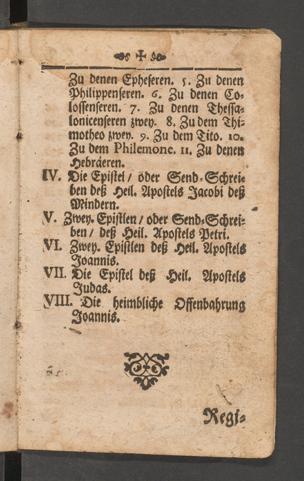 Zu denen Epheseren. 5. Zu denen
Philippenseren. 6. Zu denen Co-
lossenseren. 7. Zu denen Thessa-
lonicenseren zwey. 8. Zu dem Thi-
motheo zwey. 9. Zu dem Tito. 10.
Zu dem Philemone. 11. Zu denen
Hebräeren.
IV. Die Epistel / oder Send-Schrei-
ben deß Heil. Apostels Jacobi deß
Mindern.
V. Zwey. Epistlen / oder Send-Schrei-
ben / deß Heil. Apostels Petri.
VI. Zwey. Epistlen deß Heil. Apostels
Joannis.
VII. Die Epistel deß Heil. Apostels
Judas.
VIII. Die heimbliche Offenbahrung
Joannis.
Regi-